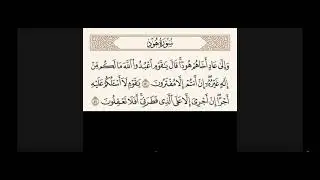 سورة هود
وإلى عاد أخاهم هودا قال يقوم اعبدوا الله ما لكم من
إله غيره إن أنتم إلا مفترون ٥٠ يقوم لا أسئلكم عليه
أجرا إن أجري إلا على الذي فطرني أفلا تعقلون ٥١